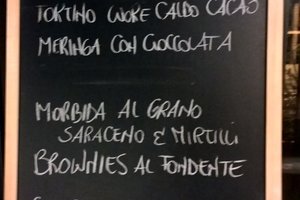 TORTINO CUORE CALDO CACAO
MERINGA CON CIOCCOLATA
MORBIDA AL GRANO
SARACENO E MIRTILLI
BROWNIES AL FONDENTE